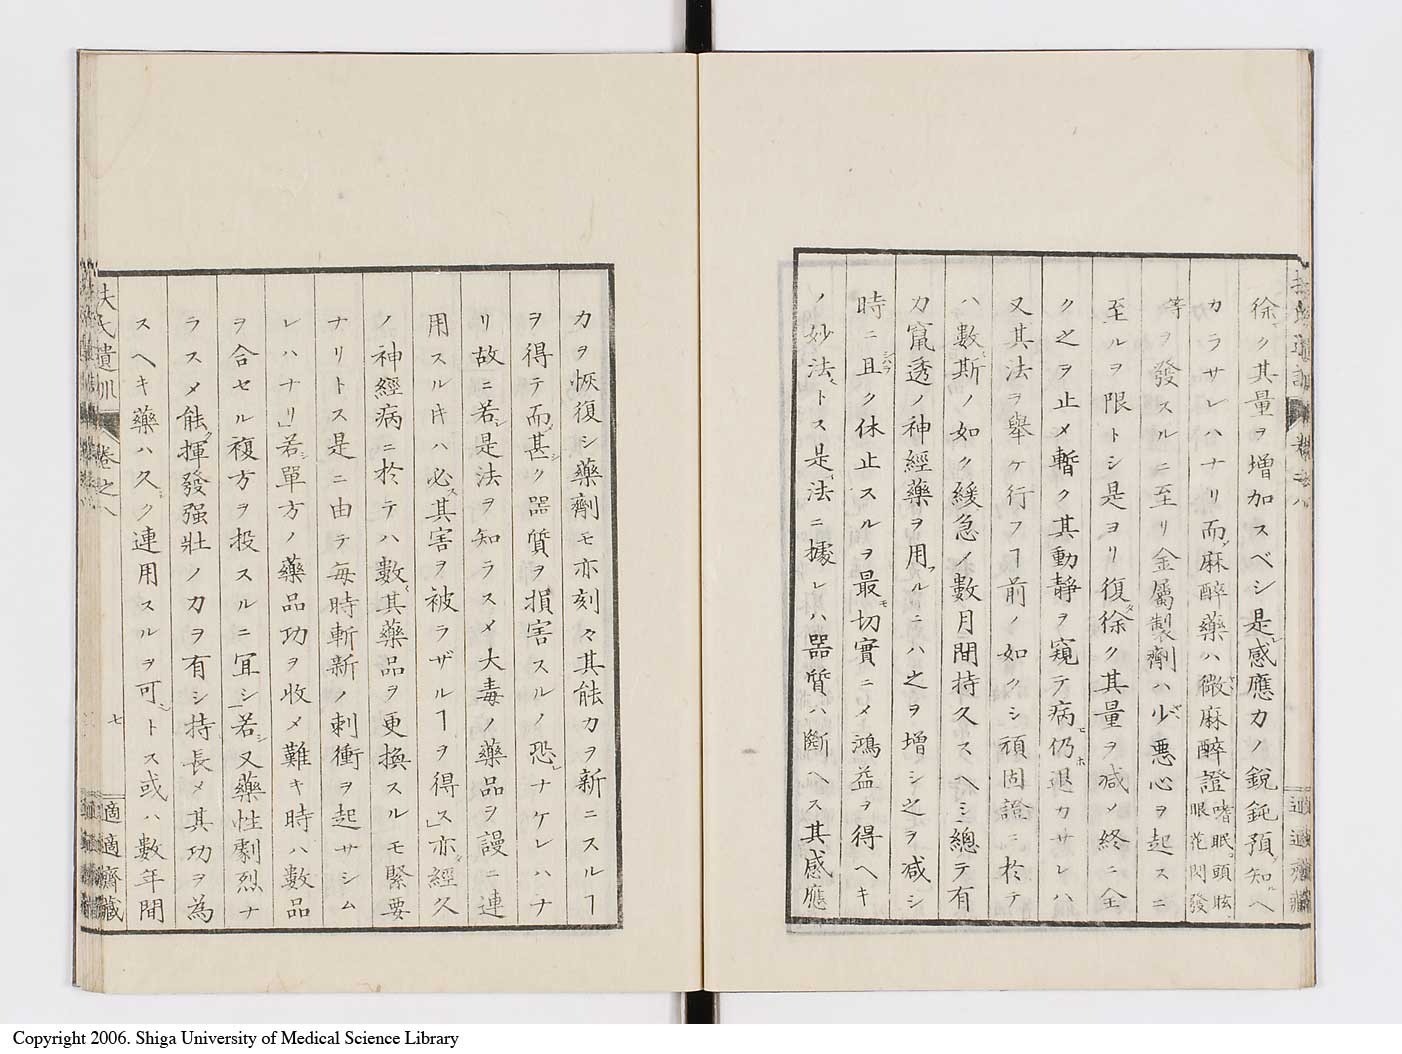 徐ク其量ヲ増加スベシ是感應力ノ銳鈍預知ヘ
カラサレハナリ而麻醉藥ハ微麻醉證嗜眠頭眩眼花閃發
等ヲ發スルニ至リ金屬製劑ハ少悪心ヲ起スニ
至ルヲ限トシ是ヨリ復徐ク其量ヲ減メ終ニ全
ク之ヲ止メ暫ク其動靜ヲ窺テ病仍退カサレハ
又其法ヲ舉ケ行フヿ前ノ如クシ頑固證ニ於テ
ハ數斯ノ如ク緩急メ數月間持久スヘシ總テ有
力竄透ノ神經藥ヲ用ルニハ之ヲ增シ之ヲ减シ
時ニ且ク休止スルヲ最切實ニメ鴻益ヲ得ヘキ
ノ妙法トス是法ニ據レハ器質ハ斷ヘス其感應
カヲ恢復シ藥劑モ亦刻々其能力ヲ新ニスルヿ
ヲ得テ而甚ク器質ヲ損害スルノ恐ナケレハナ
リ故ニ若是法ヲ知ラスメ大毒ノ藥品ヲ謾ニ連
用スルキハ必其害ヲ被ラザルヿヲ得ス」亦經久
ノ神經病ニ於テハ數其藥品ヲ更換スルモ緊要
ナリトス是ニ由テ每時斬新ノ刺衝ヲ起サシム
レハナリ」若單方ノ藥品功ヲ收メ難キ時ハ數品
ヲ合セル複方ヲ投スルニ冝シ」若又藥性劇烈ナ
ラスメ能揮發强壯ノカヲ有シ持長メ其功ヲ為
スヘキ藥ハ久ク連用スルヲ可トス或ハ數年間
扶氏遺訓 卷之八 七 適適齋藏
Copyright 2006. Shiga University of Medical Science Library